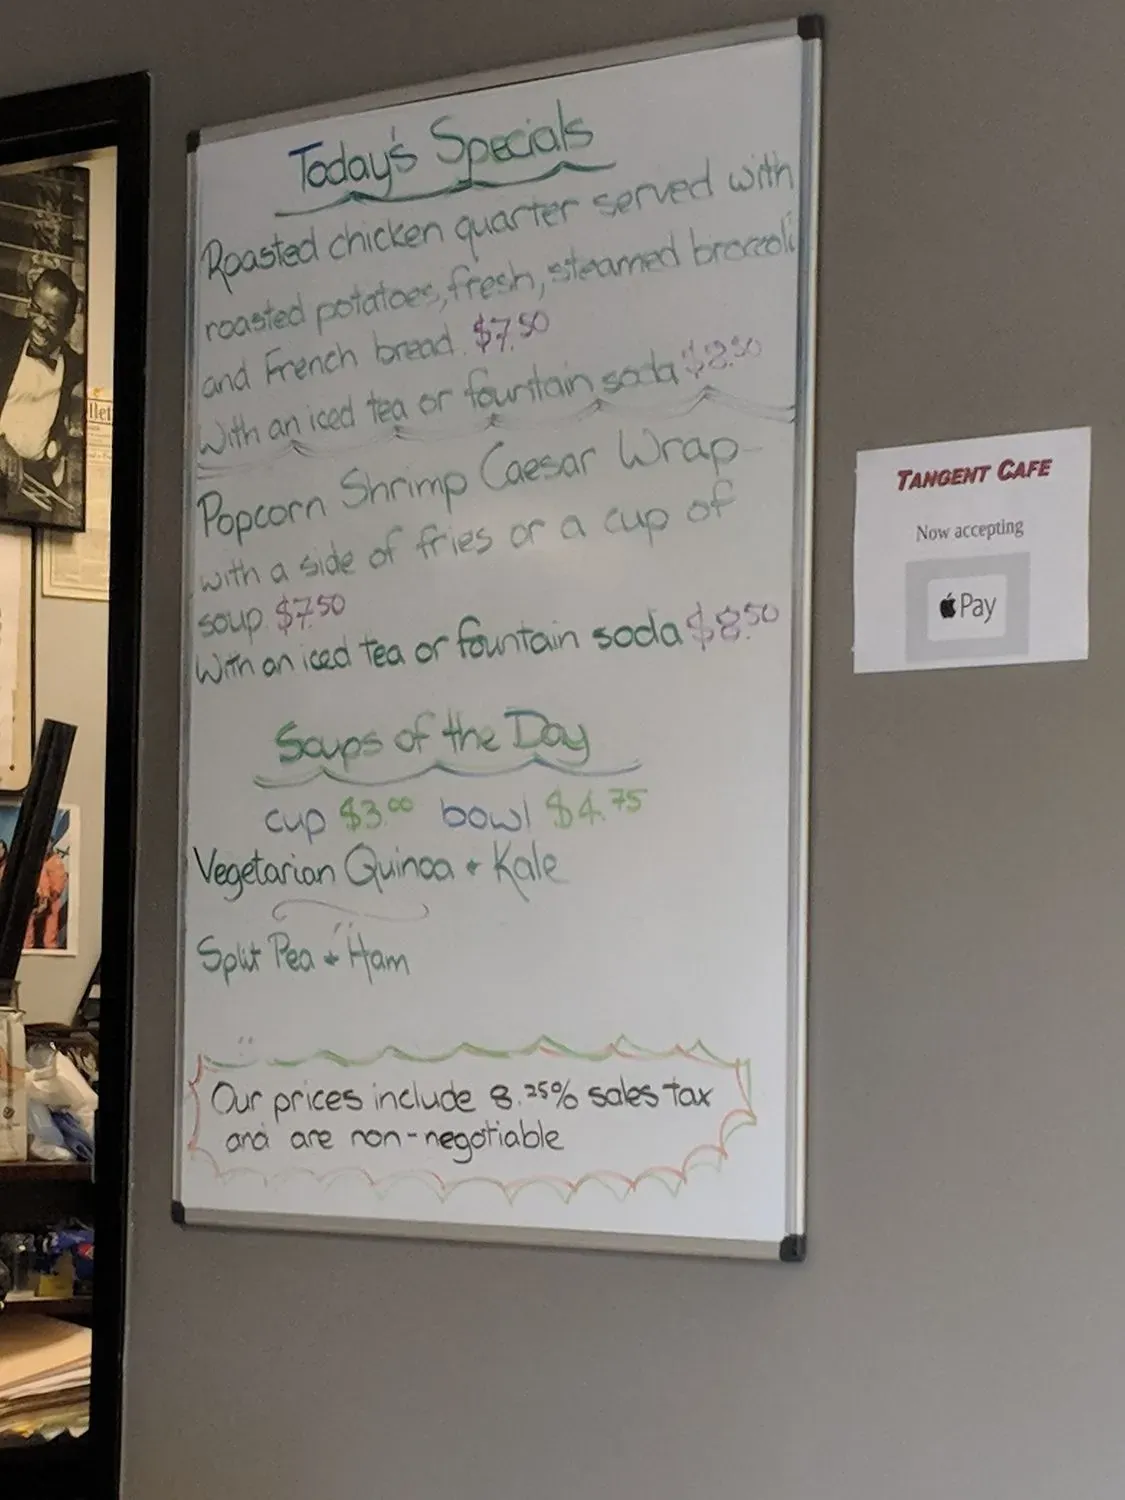 Today's Specials
Roasted chicken quarter served with
roasted potatoes, fresh, steamed broccoli
and French bread. $7.50
With an iced tea or fountain soda $8.50
Popcorn Shrimp Caesar Wrap -
with a side of fries or a cup of
soup. $7.50
With an iced tea or fountain soda $8.50
Soups of the Day
cup $3.00 bowl $4.75
Vegetarian Quinoa + Kale
Split Pea + Ham
Our prices include 8.25% sales tax
and are non-negotiable
TANGENT CAFE
Now accepting
Pay